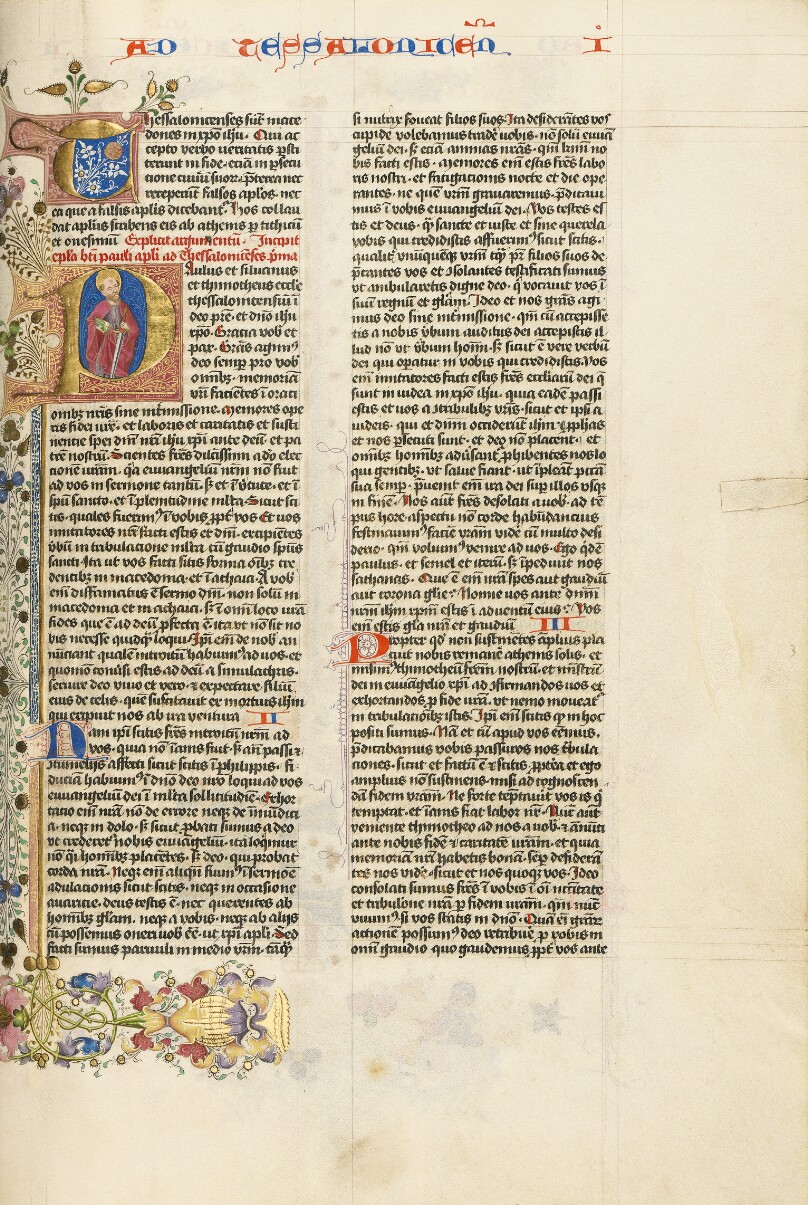 AD TESSALONICEN̄ I
Thessalonicenses sūt mace
dones in xp̄o ihū. Qui ac
cepto verbo veritatis ꝑsti
terunt in fide. etiā in ꝑsecu
tione ciuiū suoꝝ. p̄terea nec
receperūt falsos ap̄los. nec
ea que a falsis ap̄lis dicebant̄. Hos collau
dat apl̄us scribens eis ab athenis ꝑ tithicū
et onesimū Explicit argumentū. Incipit
epl̄a bt̄i pauli apl̄i ad Thessalonicēses p̄ma
Paulus et siluanus
et thimotheus eccl̄e
thessalonicensiū ī
deo pr̄e. et dn̄o ihū
xp̄o. Gracia vob et
pax. Grās agim᷒
deo semꝑ pro vob
omībꝫ. memoriā
vr̄i faciētes ī orati
ombꝫ nr̄is sine int̄missione. Memores ope
ris fidei vr̄e. et laboris et caritatis et susti
nentie spei dn̄i nr̄i ihū xp̄i ante deū. et pa
trē nostrū. Scientes fr̄es dilc̄issimi a do elec
tionē vr̄am. q̄a euuangeliū nr̄m nō fuit
ad vos in sermone tantū. sꝫ et ī v̄tute. et ī
sp̄u sancto. et ī plenitudine ml̄ta. Sicut sci
tis. quales fuerim᷒ ī vobis ꝓpt̄ vos Et vos
imitatores nr̄i facti estis et dn̄i. excipiētes
v̄bū in tribulatione ml̄ta cū gaudio sp̄us
santi. Ita ut vos facti sitis forma om̄bꝫ cre
dentibꝫ in macedonia. et ī achaia. A vob
em̄ diffamatus ē sermo dn̄i. non solū in
macedonia et in achaia. sꝫ ī om̄i loco vr̄a
fides que ē ad deū ꝓfecta ē. ita vt nō sit no
bis necesse quidq̄ loqui. Ip̄i em̄ de nob an
nūciant qualem introitū habuim᷒ ad vos. et
quomō conūsi estis ad deū a simulachris.
seruire deo viuo et vero. et expectare filiū
eius de celis. que suscitauit ex mortuis ihm̄
qui eripuit nos ab ira ventura II
Nam ip̄i scitis fr̄es introitū nr̄m ad
vos. quia nō īanis fuit. sꝫ an̄ passi et
ītumelijs affecti sicut scitis ī philippis. fi
duciā habuim᷒ ī dn̄o deo nr̄o loqui ad vos
euuangeliū dei ī ml̄ta sollicitudiē. Exhor
tatio em̄ nr̄a nō de errore neqꝫ de īmūdici
a. neqꝫ in dolo. sꝫ sicut ꝓbati sumus a deo
vt crederet̄ nobis euuāgeliū. ita loqim̄ur
non q̄i hoīmbꝫ placētes. sꝫ deo. qui probat
corda nr̄a. Neqꝫ em̄ aliqn̄ fuim᷒ ī sermōe
adulationis sicut scitis. neqꝫ in occasione
auaritie. deus testis ē. nec querentes ab
hoīmbꝫ glām. neqꝫ a vobis. neqꝫ ab alijs
cū possemus oneri uob eē. ut xp̄i apl̄i. Sed
facti sumus paruuli in medio vr̄m. tāq̄
si nutrix foueat filios suos. Ita desiderātes vos
cupide volebamus trad̄e uobis. nō solū euuā
geliū dei. sꝫ etiā animas nr̄as. qm̄ kr̄mi no
bis facti estis. Memores em̄ estis fr̄es labo
ris nostri. et fatigationis nocte et die ope
rantes. ne quē vr̄m grauaremus. p̄dicaui
mus ī vobis euuangeliū dei. Vos testes es
tis et deus. q̄ sancte et iuste et sine querela
vobis qui credidistis affuerim᷒ sicut scitis.
qualit̄ vnūquēqꝫ vr̄m tq̄ pr̄ filios suos de
p̄cantes vos et ↄsolantes testificati sumus
vt ambularetis digne deo. q̄ vocauit vos ī
suū regnū et glām. Ideo et nos grās agi
mus deo sine int̄missione. qm̄ cū accepisse
tis a nobis v̄bum auditus dei accepistis il
lud nō vt v̄bum hoīm. sꝫ sicut ē vere verbū
dei qui oꝑatur in vobis qui credidistis. Vos
em̄ imitatores facti estis fr̄es eccl̄iarū dei q̄
sunt in iudea in xp̄o ihū. quia eadē passi
estis et uos a ↄtribulibꝫ vr̄is. sicut et ip̄i a
iudeis. qui et dn̄m occiderūt ihm̄ et ꝓphās
et nos ꝑsecuti sunt. et deo nō placent. et
omībꝫ hoīmbꝫ adūsant̄. ꝓhibentes nos lo
qui gentibꝫ. vt salue fiant. ut īpleāt pc̄cā
sua semꝑ. ꝑuenit em̄ ira dei suꝑ illos usqꝫ
in finē. Nos aūt fr̄es desolati a uob. ad tē
pus hore. aspectu nō corde habūdancius
festinauim᷒ faciē vr̄am vid̄e cū multo desi
derio. qm̄ voluim᷒ venire ad uos. Ego q̄dē
paulus. et semel et iterū. sꝫ īpediuit nos
sathanas. Que ē em̄ nr̄a spes aut gaudiū
aut corona gl̄ie. Nonne vos ante dn̄m
nr̄m ihm̄ xp̄m estis ī aduentū eius. Vos
em̄ estis gl̄a nr̄a et gaudiū III
Propter qd̄ non sustinētes aplius pla
cuit nobis remanē athenis solis. et
misim᷒ thimotheū fr̄em nostrū. et mn̄strū
dei in euuāgelio xp̄i ad ↄfirmandos uos et
exhortandos ꝓ fide vr̄a. ut nemo moueat̄
in tribulatiōibꝫ istis. Ip̄i em̄ scitis q̄ in hoc
positi sumus. Nā et cū apud vos eēmus.
p̄dicabamus vobis passuros nos t̄bula
tiones. sicut et factū ē et scitis. ꝓpt̄ea et ego
amplius nō sustinens. misi ad cognoscen
dā fidem vr̄am. Ne forte tēptauit vos is q̄
temptat. et īanis fiat labor nr̄. Nūc aūt
veniente thimotheo ad nos a uob. et ānūti
ante nobis fidē et caritatē vr̄am. et quia
memoriā nr̄i habetis bonā. sēp desiderā
tes nos vid̄e. sicut et nos quoqꝫ vos. Ideo
consolati sumus fr̄es ī vobis ī oī nc̄citate
et tribulōne nr̄a ꝓ fidem vr̄am. qm̄ nūc
viuim᷒ si vos statis in dn̄o. Quā em̄ grār
actionē possum᷒ deo retribue ꝓ vobis in
om̄i gaudio quo gaudemus ꝓpt̄ vos ante